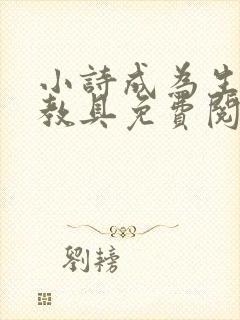 小詩成為生
教具免費閱
劉榜